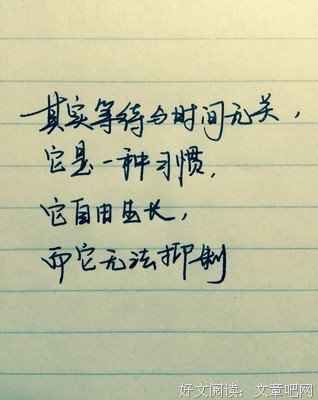 其实等待与时间无关，
它是一种习惯，
它自由生长，
而它无法抑制
好文阅读：文章吧网